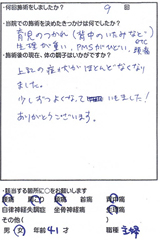 ・何回施術をしましたか？
9 回
・当院での施術を決めたきっかけは何でしたか？
育児のつかれ（背中のいたみなど）
生理が重い、PMSがひどい、etc 腰痛
・施術後の現在、体の調子はいかがですか？
上記の症状がほとんどなくなり
ました。
少しずつよくなって いきました！
ありがとうございます。
・該当する箇所に○をお願いします
腰痛
自律神経失調症 坐骨神経痛
その他（
男 女 年齢 41才 職種 主婦